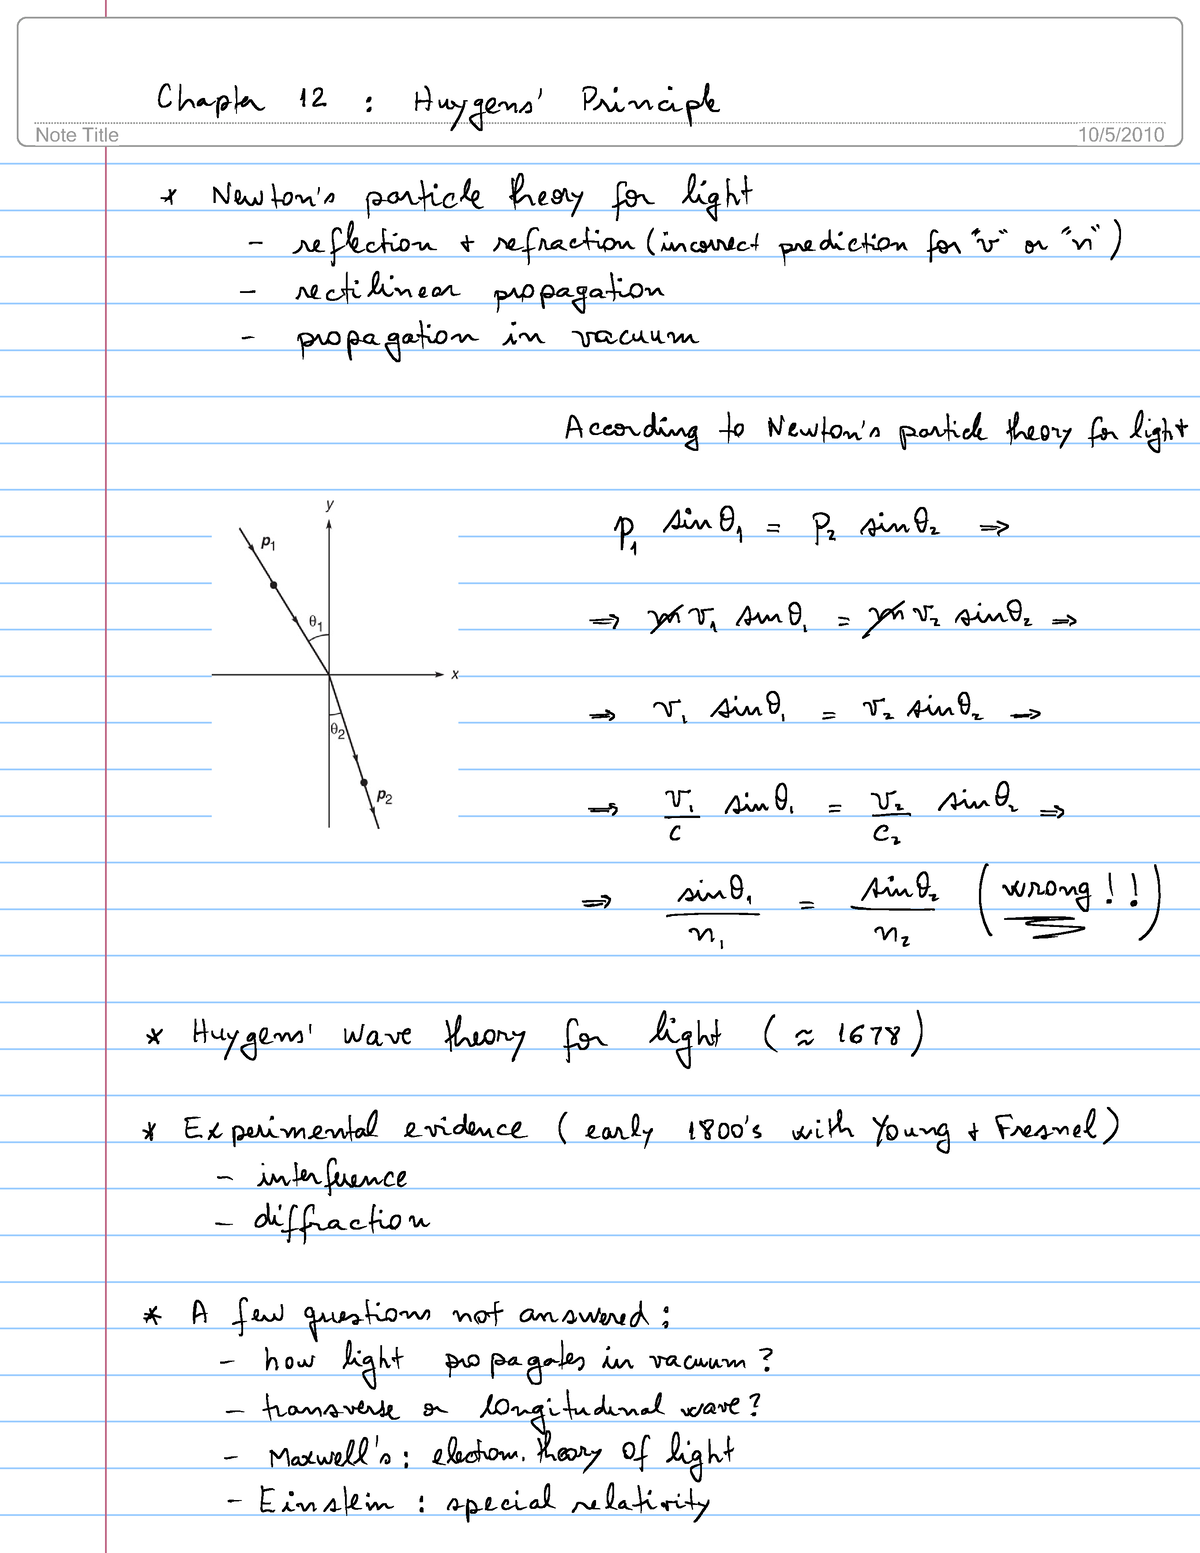 Chapter 12 : Huygens' Principle
Note Title
10/5/2010
* Newton's particle theory for light
- reflection + refraction (incorrect prediction for "v" or "n")
- rectilinear propagation
- propagation in vacuum
According to Newton's particle theory for light
y
p₁
θ₁
x
θ₂
p₂
p₁ sinθ₁ = p₂ sinθ₂ ⇒
⇒ m v₁ sinθ₁ = m v₂ sinθ₂ ⇒
⇒ v₁ sinθ₁ = v₂ sinθ₂ ⇒
⇒ v₁/c sinθ₁ = v₂/c₂ sinθ₂ ⇒
⇒ sinθ₁/n₁ = sinθ₂/n₂ (wrong!!)
* Huygens' wave theory for light (≈ 1678)
* Experimental evidence (early 1800's with Young + Fresnel)
- interference
- diffraction
* A few questions not answered:
- how light propagates in vacuum?
- transverse or longitudinal wave?
- Maxwell's: electrom. theory of light
- Einstein : special relativity